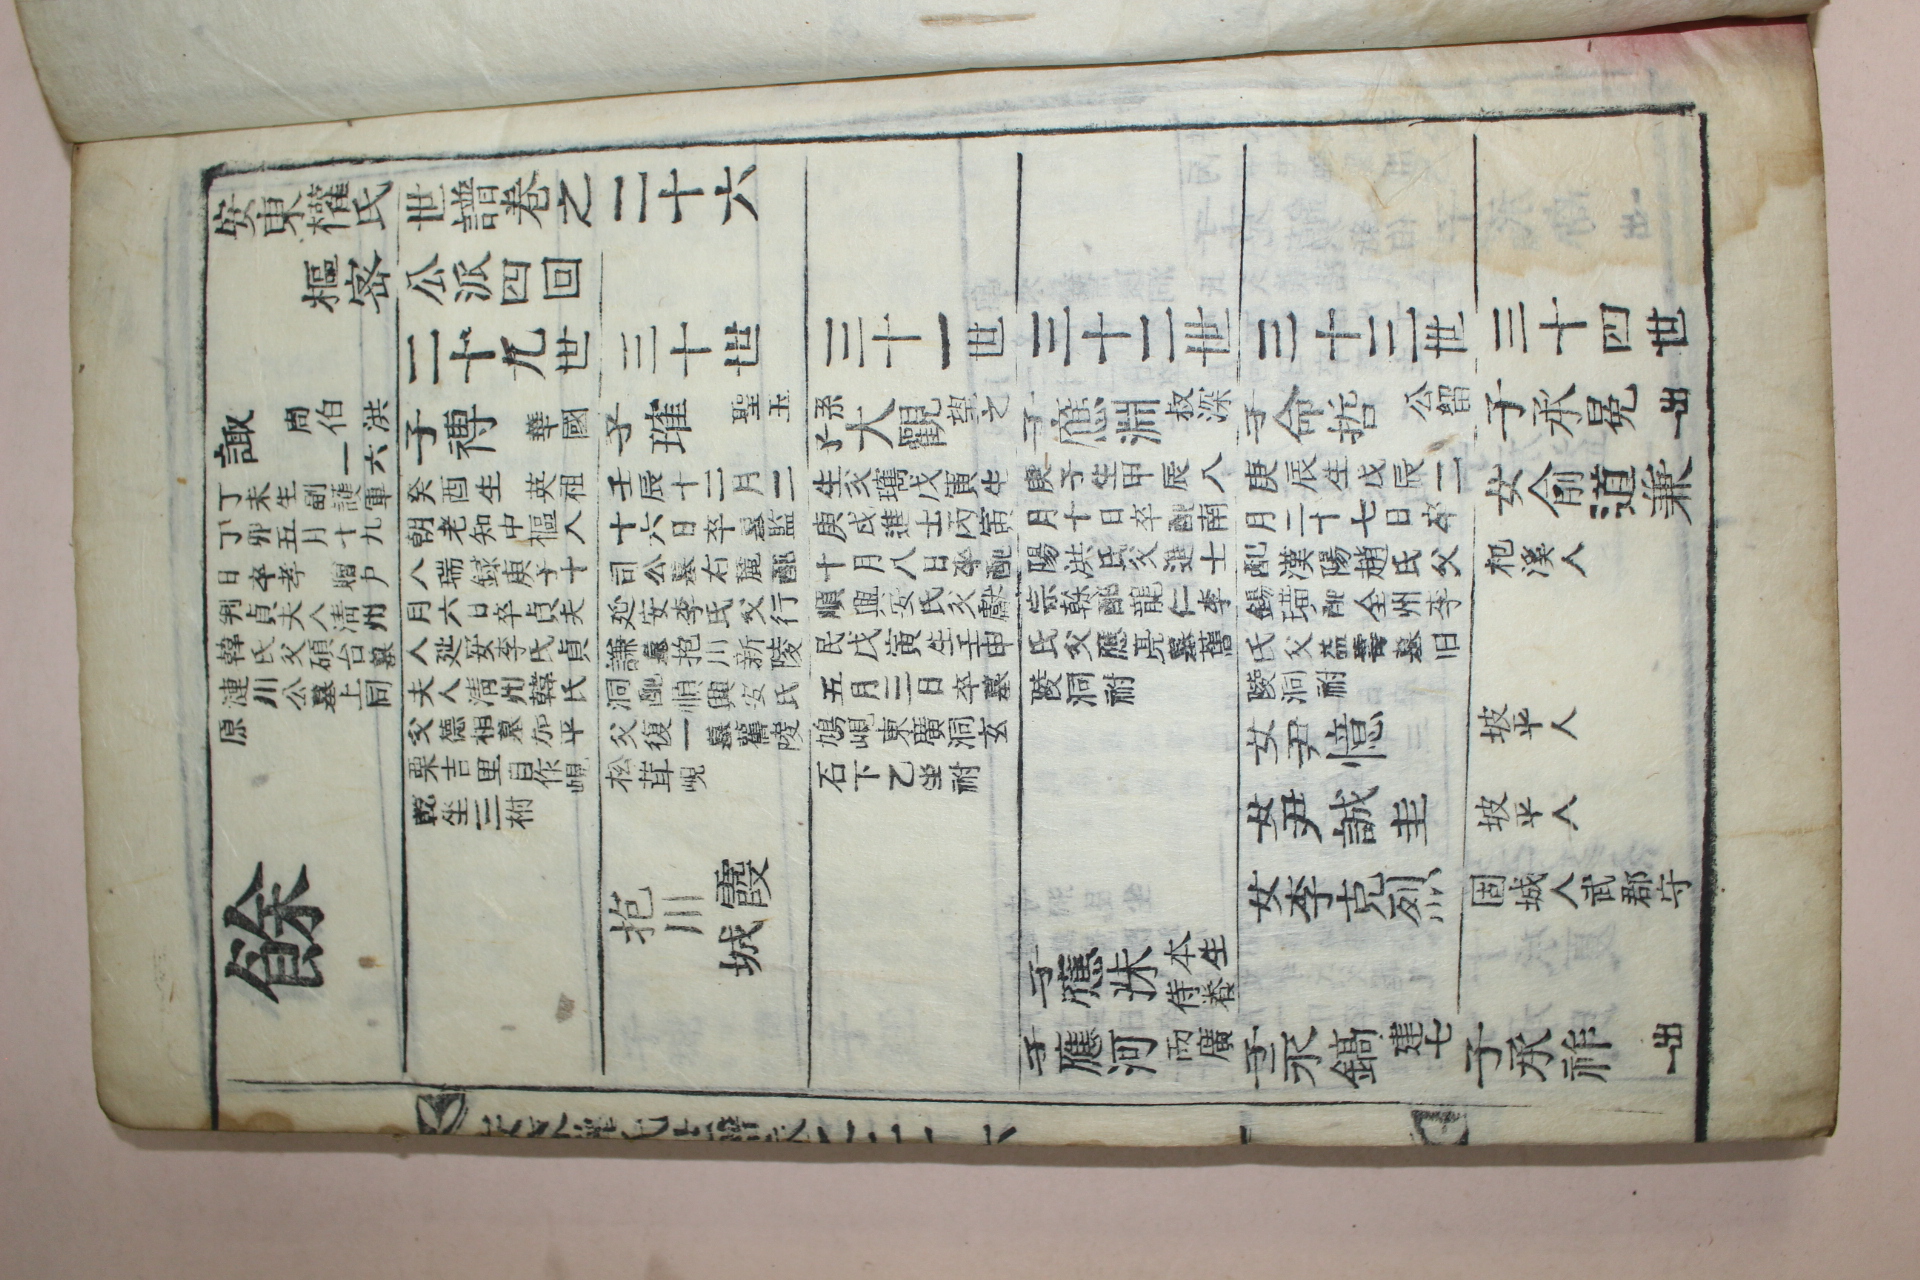 安東權氏世譜卷之二十六
樞密公派四回
二十九世
三十世
三十一世
三十二世
三十三世
三十四世
諏 周伯 一洪六
丁未生副護軍
丁卯五月十九
日卒孝贈戶
判貞夫人淸州
韓氏父碩台墓
漣川公墓上同
原
餘
子 華國
癸酉生 英祖
朝老知中樞入
八瑞録庚子十
月六日卒貞夫
人延安李氏貞
夫人淸州韓氏
父德相墓加平
栗吉里自作峴
乾坐三祔
子㻶 聖玉
壬辰十二月二
十六日卒墓監
司公墓右麓配
延安李氏父行
謙墓抱川新陵
洞配順興安氏
父復一墓舊陵
松茸峴
抱川
霞城
系子大觀 望之
生父戊寅生
庚戌進士丙寅
十月八日卒配
順興安氏父獻
民戊寅生壬申
五月三日卒墓
鳩峴東廣洞玄
石下乙坐祔
子應淵 叔深
庚子生甲辰八
月十日卒配南
陽洪氏父進士
宗榦配龍仁李
氏父應亮墓舊
陵洞祔
子應洙 本生侍養
子應河 而廣
子命哲 公留
庚辰生戊辰一
月二十七日卒
配漢陽趙氏父
錫璜配全州李
氏父益壽墓旧
陵洞祔
女尹憶
女尹誠圭
女李克烈
子永鎬 建七
子承冕 一出
女兪道兼
杞溪人
坡平人
坡平人
固城人武郡守
子承祚 一出